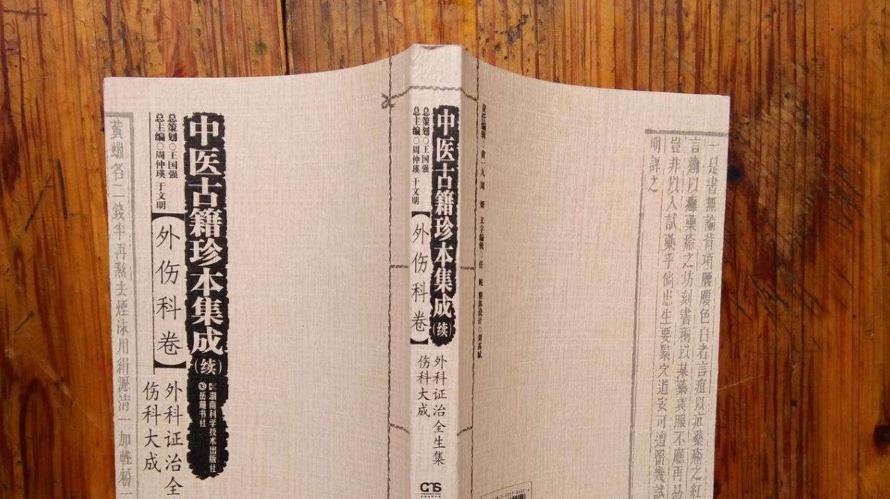 黄蠟各二錢半再熬去煙沫用絹濾清一加
总策划○王国强
总主编○周仲瑛 于文明
中医古籍珍本集成
(续)
【外伤科卷】
外科证治全
伤科大成
湖南科学技术出版社
岳麓书社
总策划○王国强
总主编○周仲瑛 于文明
中医古籍珍本集成
(续)
【外伤科卷】
外科证治全生集
伤科大成
责任编辑
文字编辑
整体设计
一是書無論背項腰腹色白者言疽以
言癰以
藥瘡之坊刻書
以
藥
服不應再
豈非以人試藥乎倘患生要緊穴道安可遭
幾試
明譯之